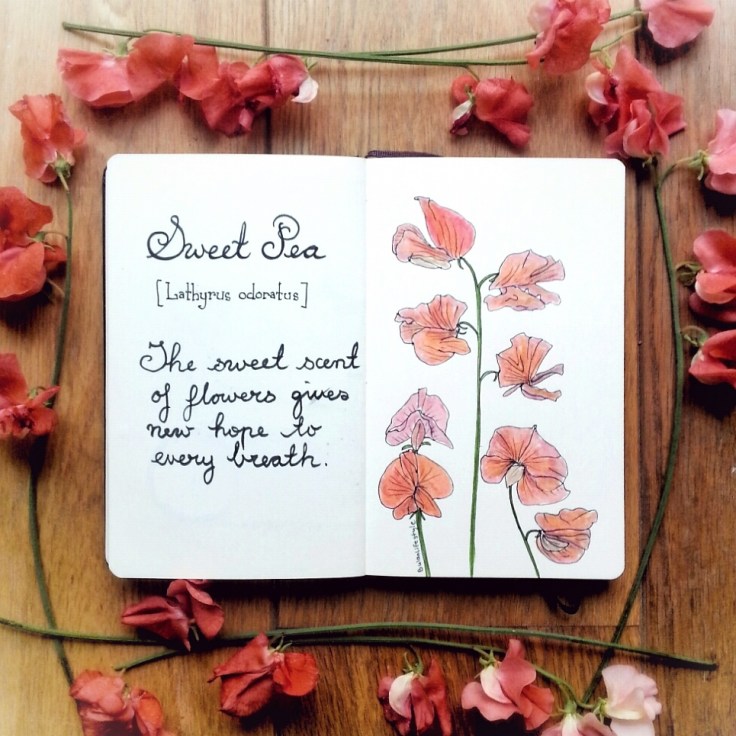 Sweet Pea
[Lathyrus odoratus]
The sweet scent
of flowers gives
new hope to
every breath.